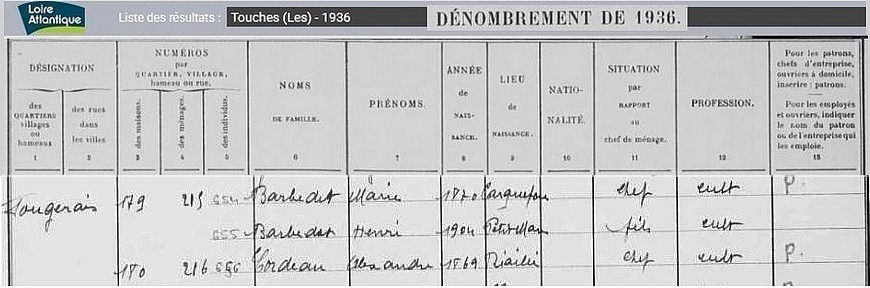 Loire Atlantique Liste des résultats : Touches (Les) - 1936 DÉNOMBREMENT DE 1936.
DÉSIGNATION
des QUARTIERS villages ou hameaux
1
des rues dans les villes
2
NUMÉROS par QUARTIER, VILLAGE, hameau ou rue.
des maisons.
3
des ménages.
4
des individus.
5
NOMS DE FAMILLE.
6
PRÉNOMS.
7
ANNÉE de NAISSANCE.
8
LIEU de NAISSANCE.
9
NATIONALITÉ.
10
SITUATION par RAPPORT au chef de ménage.
11
PROFESSION.
12
Pour les patrons, chefs d'entreprise, ouvriers à domicile, inscrire : patrons.
Pour les employés et ouvriers, indiquer le nom du patron ou de l'entreprise qui les emploie.
13
Fougerais 179 215 654 Barbedet Marie 1870 Carquefou chef cult P.
655 Barbedet Henri 1904 fils cult
216 656 1869 Riaillé chef cult P.